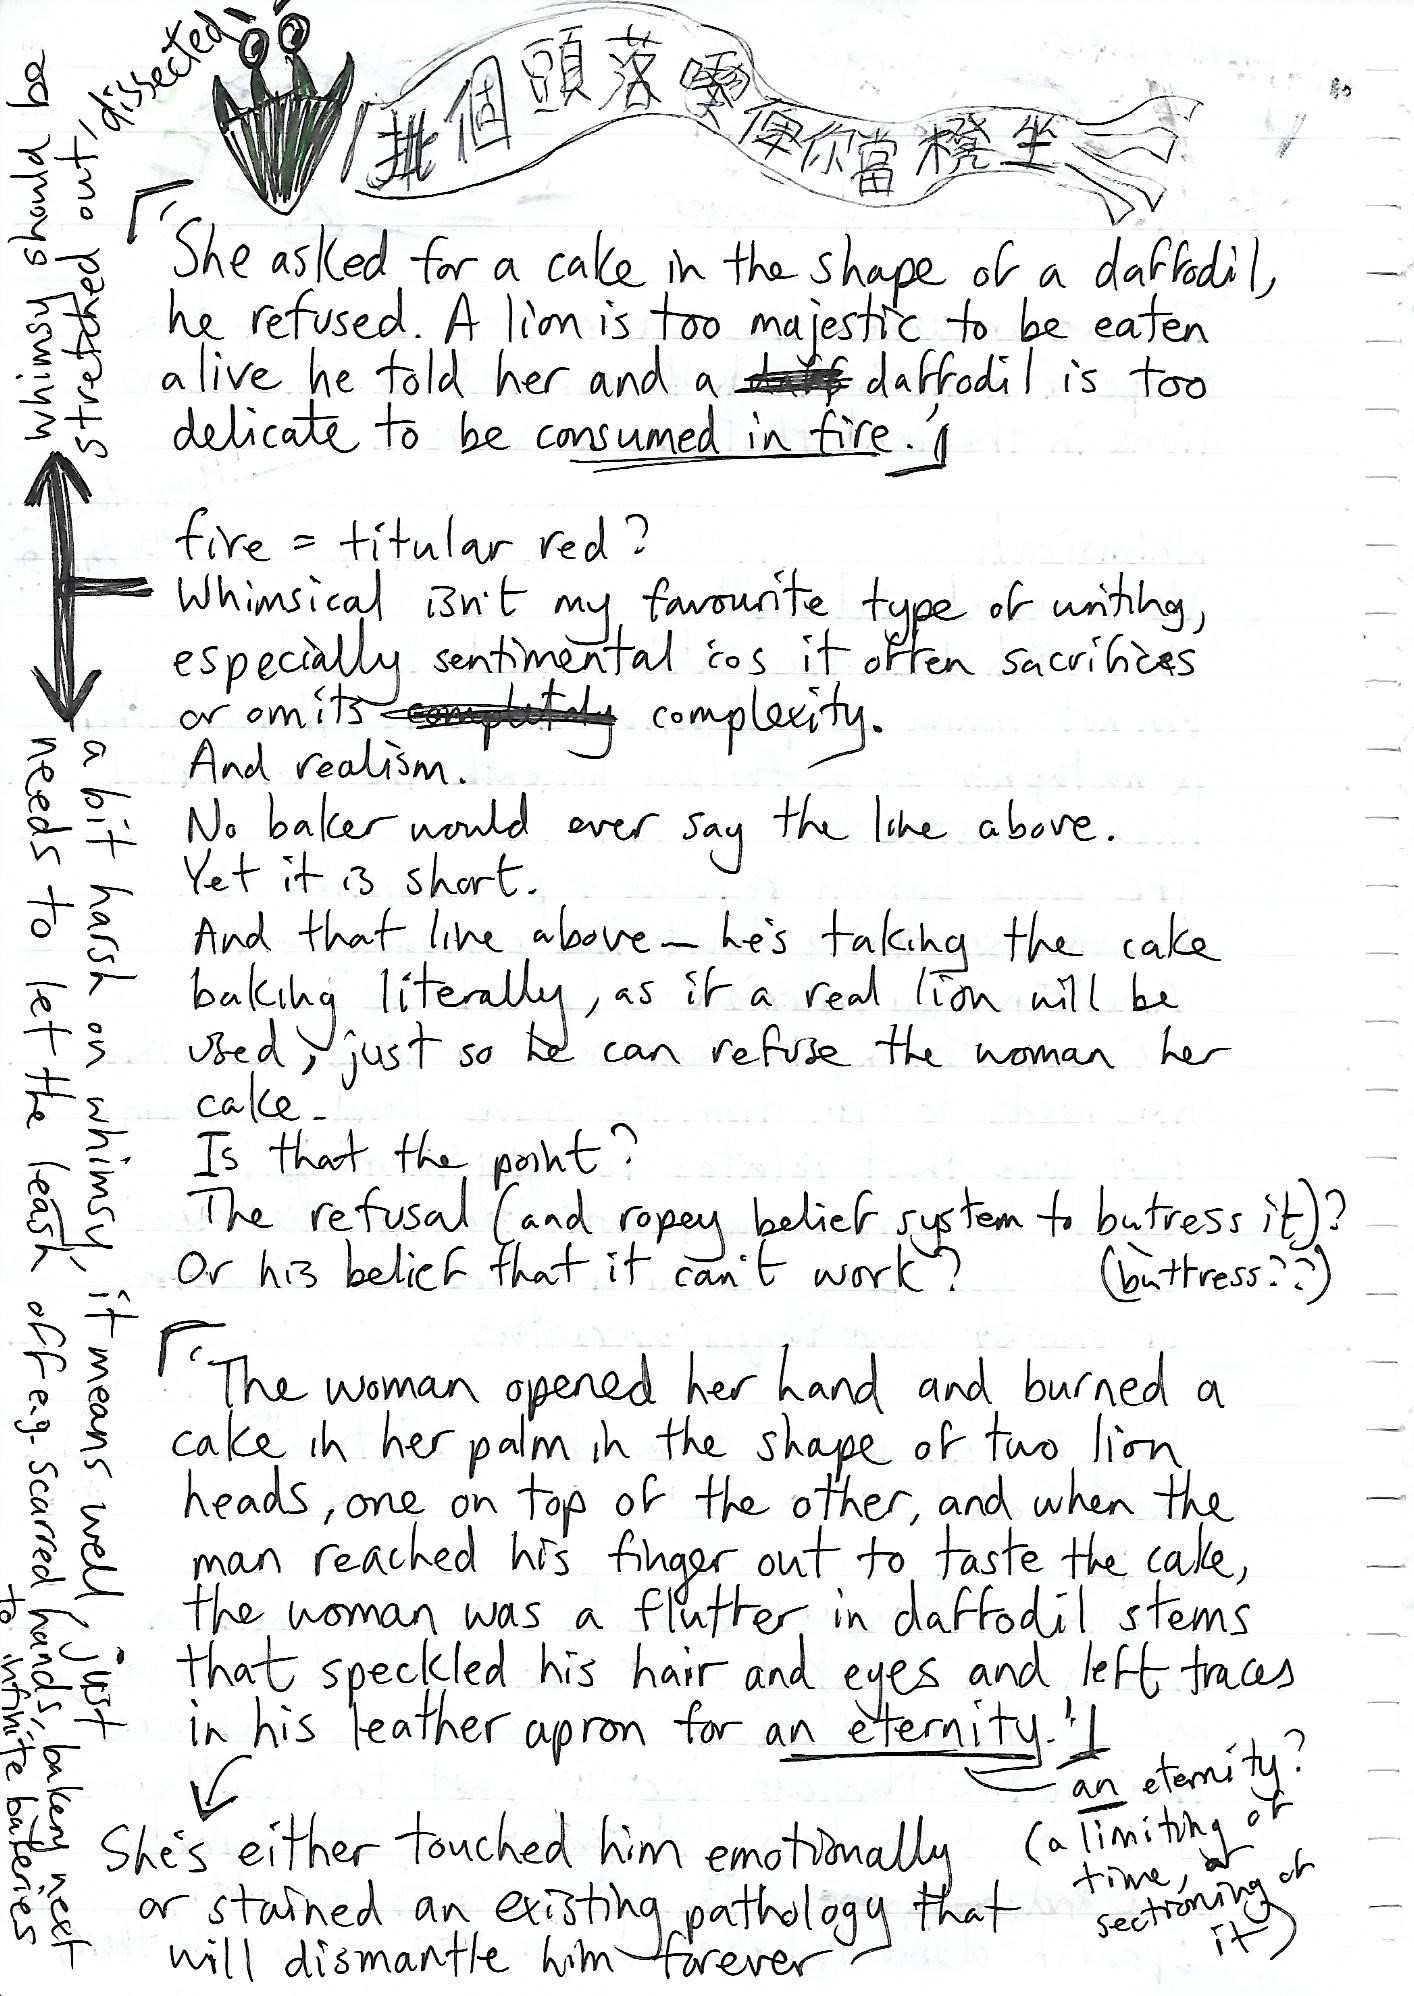 擰個頭落嚟俾你當櫈坐
'She asked for a cake in the shape of a daffodil,
he refused. A lion is too majestic to be eaten
alive he told her and a daffodil is too
delicate to be consumed in fire.'
fire = titular red?
Whimsical isn't my favourite type of writing,
especially sentimental cos it often sacrifices
or omits completely complexity.
And realism.
No baker would ever say the line above.
Yet it is short.
And that line above — he's taking the cake
baking literally, as if a real lion will be
used, just so he can refuse the woman her
cake.
Is that the point?
The refusal (and ropey belief system to butress it)?
Or his belief that it can't work?
(buttress??)
'The woman opened her hand and burned a
cake in her palm in the shape of two lion
heads, one on top of the other, and when the
man reached his finger out to taste the cake,
the woman was a flutter in daffodil stems
that speckled his hair and eyes and left traces
in his leather apron for an eternity.'
an eternity?
(a limiting of
time, or
sectioning of
it)
She's either touched him emotionally
or stained an existing pathology that
will dismantle him forever
whimsy should be
'stretched out'
dissected
a bit harsh on whimsy, it means well, just
needs to 'let the leash' off e.g. scarred hands, bakery next
to infinite bakeries